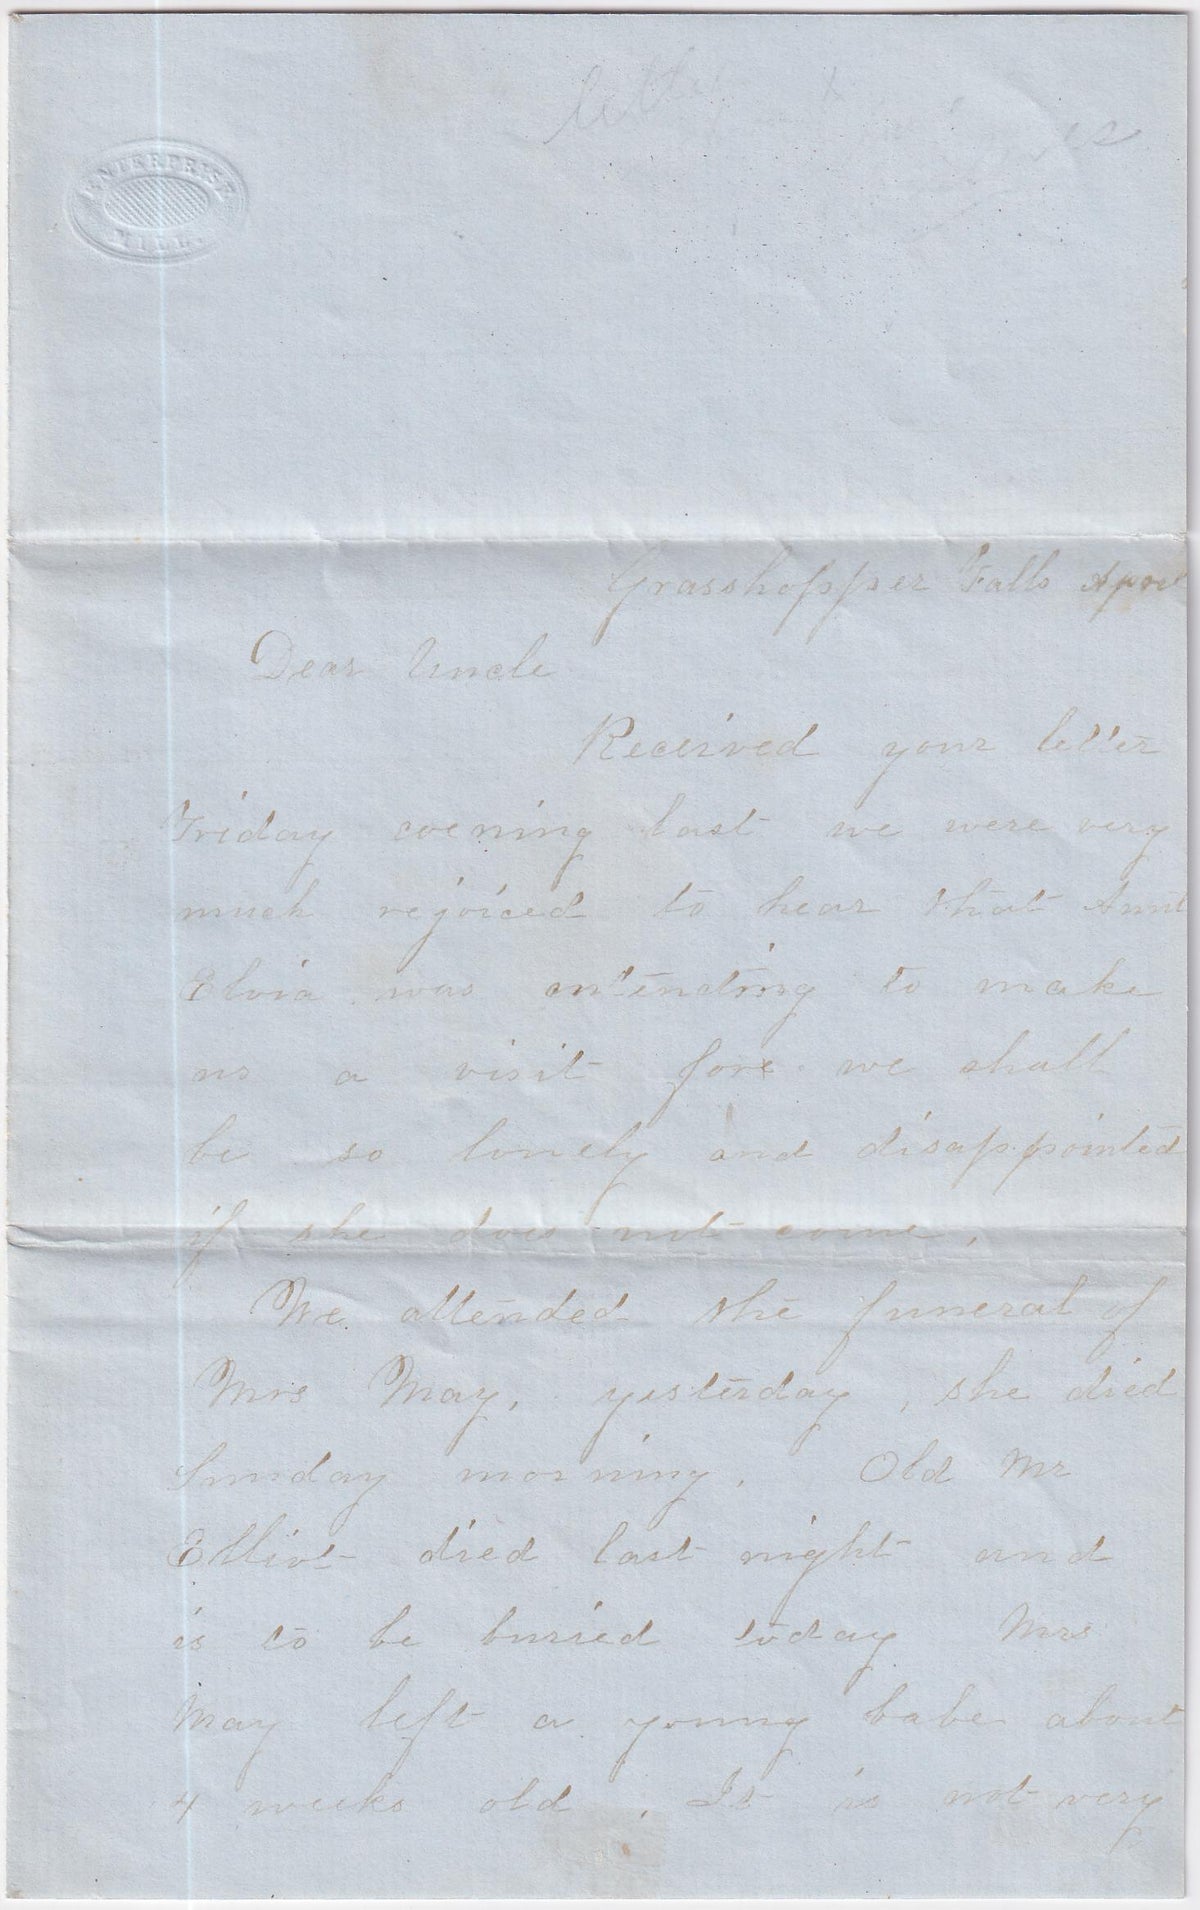 letter
ENTERPRISE
MILL.
Grasshopper Falls April
Dear Uncle
Received your letter
Friday evening last we were very
much rejoiced to hear that Aunt
Elvia was intending to make
us a visit fore we shall
be so lonely and disappointed
if she does not come.
We attended the funeral of
Mrs May, yesterday, she died
Sunday morning. Old Mr
Elliot died last night and
is to be buried today Mrs
May left a young babe about
4 weeks old. It is not very